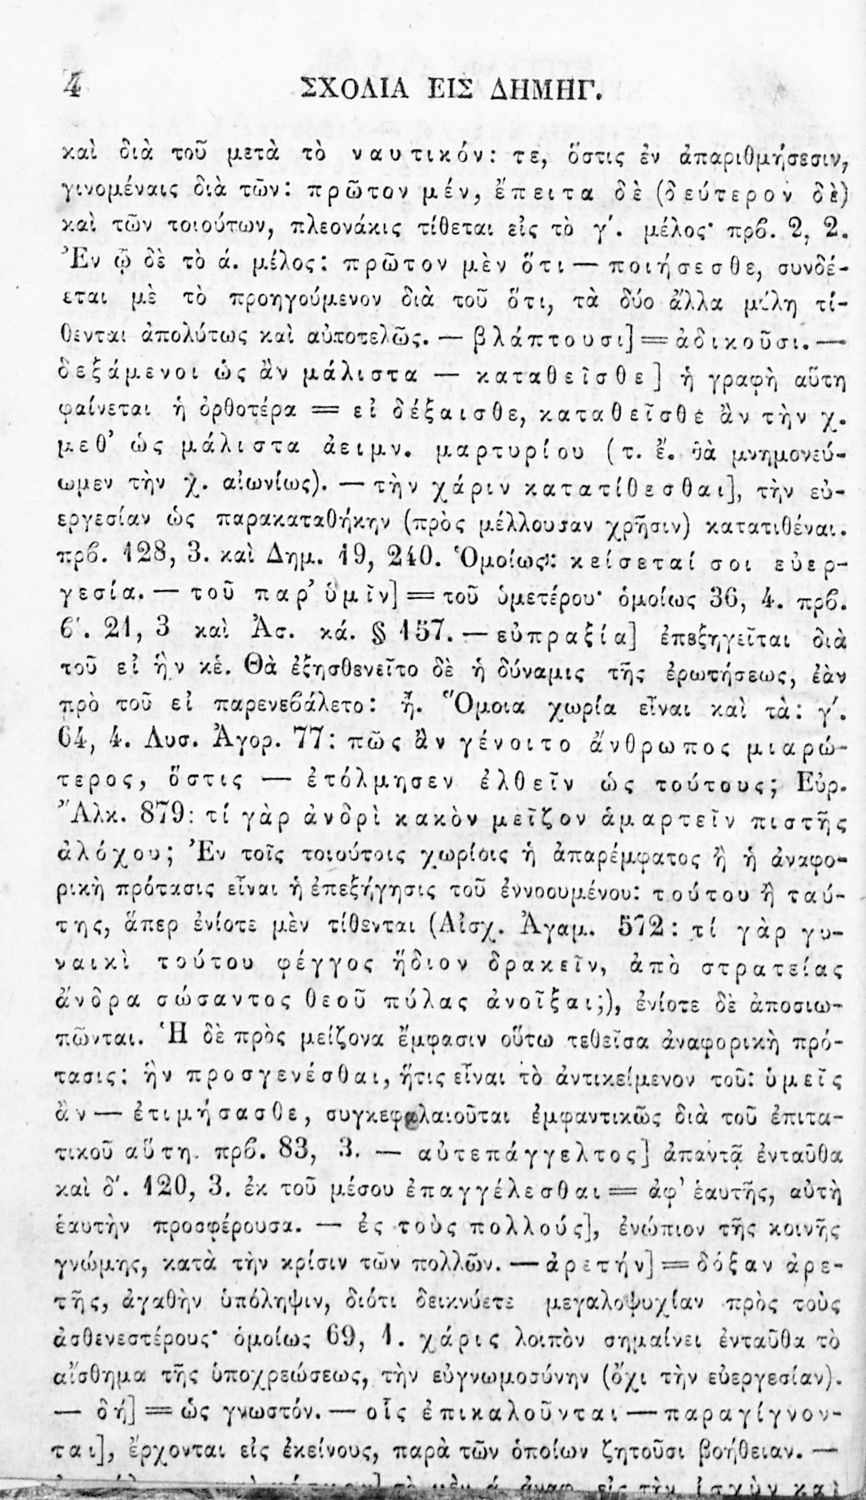 4 ΣΧΟΛΙΑ ΕΙΣ ΔΗΜΗΓ.
καὶ διὰ τοῦ μετὰ τὸ ναυτικόν: τε, ὅστις ἐν ἀπαριθμήσεσιν,
γινομέναις διὰ τῶν: πρῶτον μέν, ἔπειτα δὲ (δεύτερον δὲ)
καὶ τῶν τοιούτων, πλεονάκις τίθεται εἰς τὸ γ΄. μέλος· πρϐ. 2, 2.
Ἐν ᾧ δὲ τὸ ά. μέλος: πρῶτον μὲν ὅτι — ποιήσεσθε, συνδέ-
εται μὲ τὸ προηγούμενον διὰ τοῦ ὅτι, τὰ δύο ἄλλα μέλη τί-
θενται ἀπολύτως καὶ αὐτοτελῶς. — βλάπτουσι] = ἀδικοῦσι. —
δεξάμενοι ὡς ἂν μάλιστα — καταθεῖσθε] ἡ γραφὴ αὕτη
φαίνεται ἡ ὀρθοτέρα = εἰ δέξαισθε, καταθεῖσθε ἂν τὴν χ.
μεθ’ ὡς μάλιστα ἀειμν. μαρτυρίου (τ. ἔ. θὰ μνημονεύ-
ωμεν τὴν χ. αἰωνίως). — τὴν χάριν κατατίθεσθαι], τὴν εὐ-
εργεσίαν ὡς παρακαταθήκην (πρὸς μέλλουσαν χρῆσιν) κατατιθέναι.
πρϐ. 128, 3. καὶ Δημ. 19, 240. Ὁμοίως: κείσεταί σοι εὐερ-
γεσία. — τοῦ παρ’ ὑμῖν] = τοῦ ὑμετέρου· ὁμοίως 36, 4. πρϐ.
ϐ΄. 21, 3 καὶ Ἀσ. κά. § 157. — εὐπραξία] ἐπεξηγεῖται διὰ
τοῦ εἰ ἣν κἑ. Θὰ ἐξησθενεῖτο δὲ ἡ δύναμις τῆς ἐρωτήσεως, ἐὰν
πρὸ τοῦ εἰ παρενεϐάλετο: ἢ. Ὅμοια χωρία εἶναι καὶ τὰ: γ΄.
64, 4. Λυσ. Ἀγορ. 77: πῶς ἂν γένοιτο ἄνθρωπος μιαρώ-
τερος, ὅστις — ἐτόλμησεν ἐλθεῖν ὡς τούτους; Εὐρ.
Ἄλκ. 879: τί γὰρ ἀνδρὶ κακὸν μεῖζον ἁμαρτεῖν πιστῆς
ἀλόχου; Ἐν τοῖς τοιούτοις χωρίοις ἡ ἀπαρέμφατος ἢ ἡ ἀναφο-
ρικὴ πρότασις εἶναι ἡ ἐπεξήγησις τοῦ ἐννοουμένου: τούτου ἢ ταύ-
της, ἅπερ ἐνίοτε μὲν τίθενται (Αἰσχ. Ἀγαμ. 572: τί γὰρ γυ-
ναικὶ τούτου φέγγος ἥδιον δρακεῖν, ἀπὸ στρατείας
ἄνδρα σώσαντος θεοῦ πύλας ἀνοῖξαι;), ἐνίοτε δὲ ἀποσιω-
πῶνται. Ἡ δὲ πρὸς μείζονα ἔμφασιν οὕτω τεθεῖσα ἀναφορικὴ πρό-
τασις: ἣν προσγενέσθαι, ἥτις εἶναι τὸ ἀντικείμενον τοῦ: ὑμεῖς
ἂν — ἐτιμήσασθε, συγκεφαλαιοῦται ἐμφαντικῶς διὰ τοῦ ἐπιτα-
τικοῦ αὕτη. πρϐ. 83, 3. — αὐτεπάγγελτος] ἀπαντᾷ ἐνταῦθα
καὶ δ΄. 120, 3. ἐκ τοῦ μέσου ἐπαγγέλεσθαι = ἀφ’ ἑαυτῆς, αὐτὴ
ἑαυτὴν προσφέρουσα. — ἐς τοὺς πολλούς], ἐνώπιον τῆς κοινῆς
γνώμης, κατὰ τὴν κρίσιν τῶν πολλῶν. — ἀρετήν] = δόξαν ἀρε-
τῆς, ἀγαθὴν ὑπόληψιν, διότι δεικνύετε μεγαλοψυχίαν πρὸς τοὺς
ἀσθενεστέρους· ὁμοίως 69, 1. χάρις λοιπὸν σημαίνει ἐνταῦθα τὸ
αἴσθημα τῆς ὑποχρεώσεως, τὴν εὐγνωμοσύνην (ὄχι τὴν εὐεργεσίαν).
— δή] = ὡς γνωστόν. — οἷς ἐπικαλοῦνται — παραγίγνον-
ται], ἔρχονται εἰς ἐκείνους, παρὰ τῶν ὁποίων ζητοῦσι βοήθειαν. —
τὸ μὲν ά. ἀναφ. εἰς τὴν ἰσχὺν καὶ